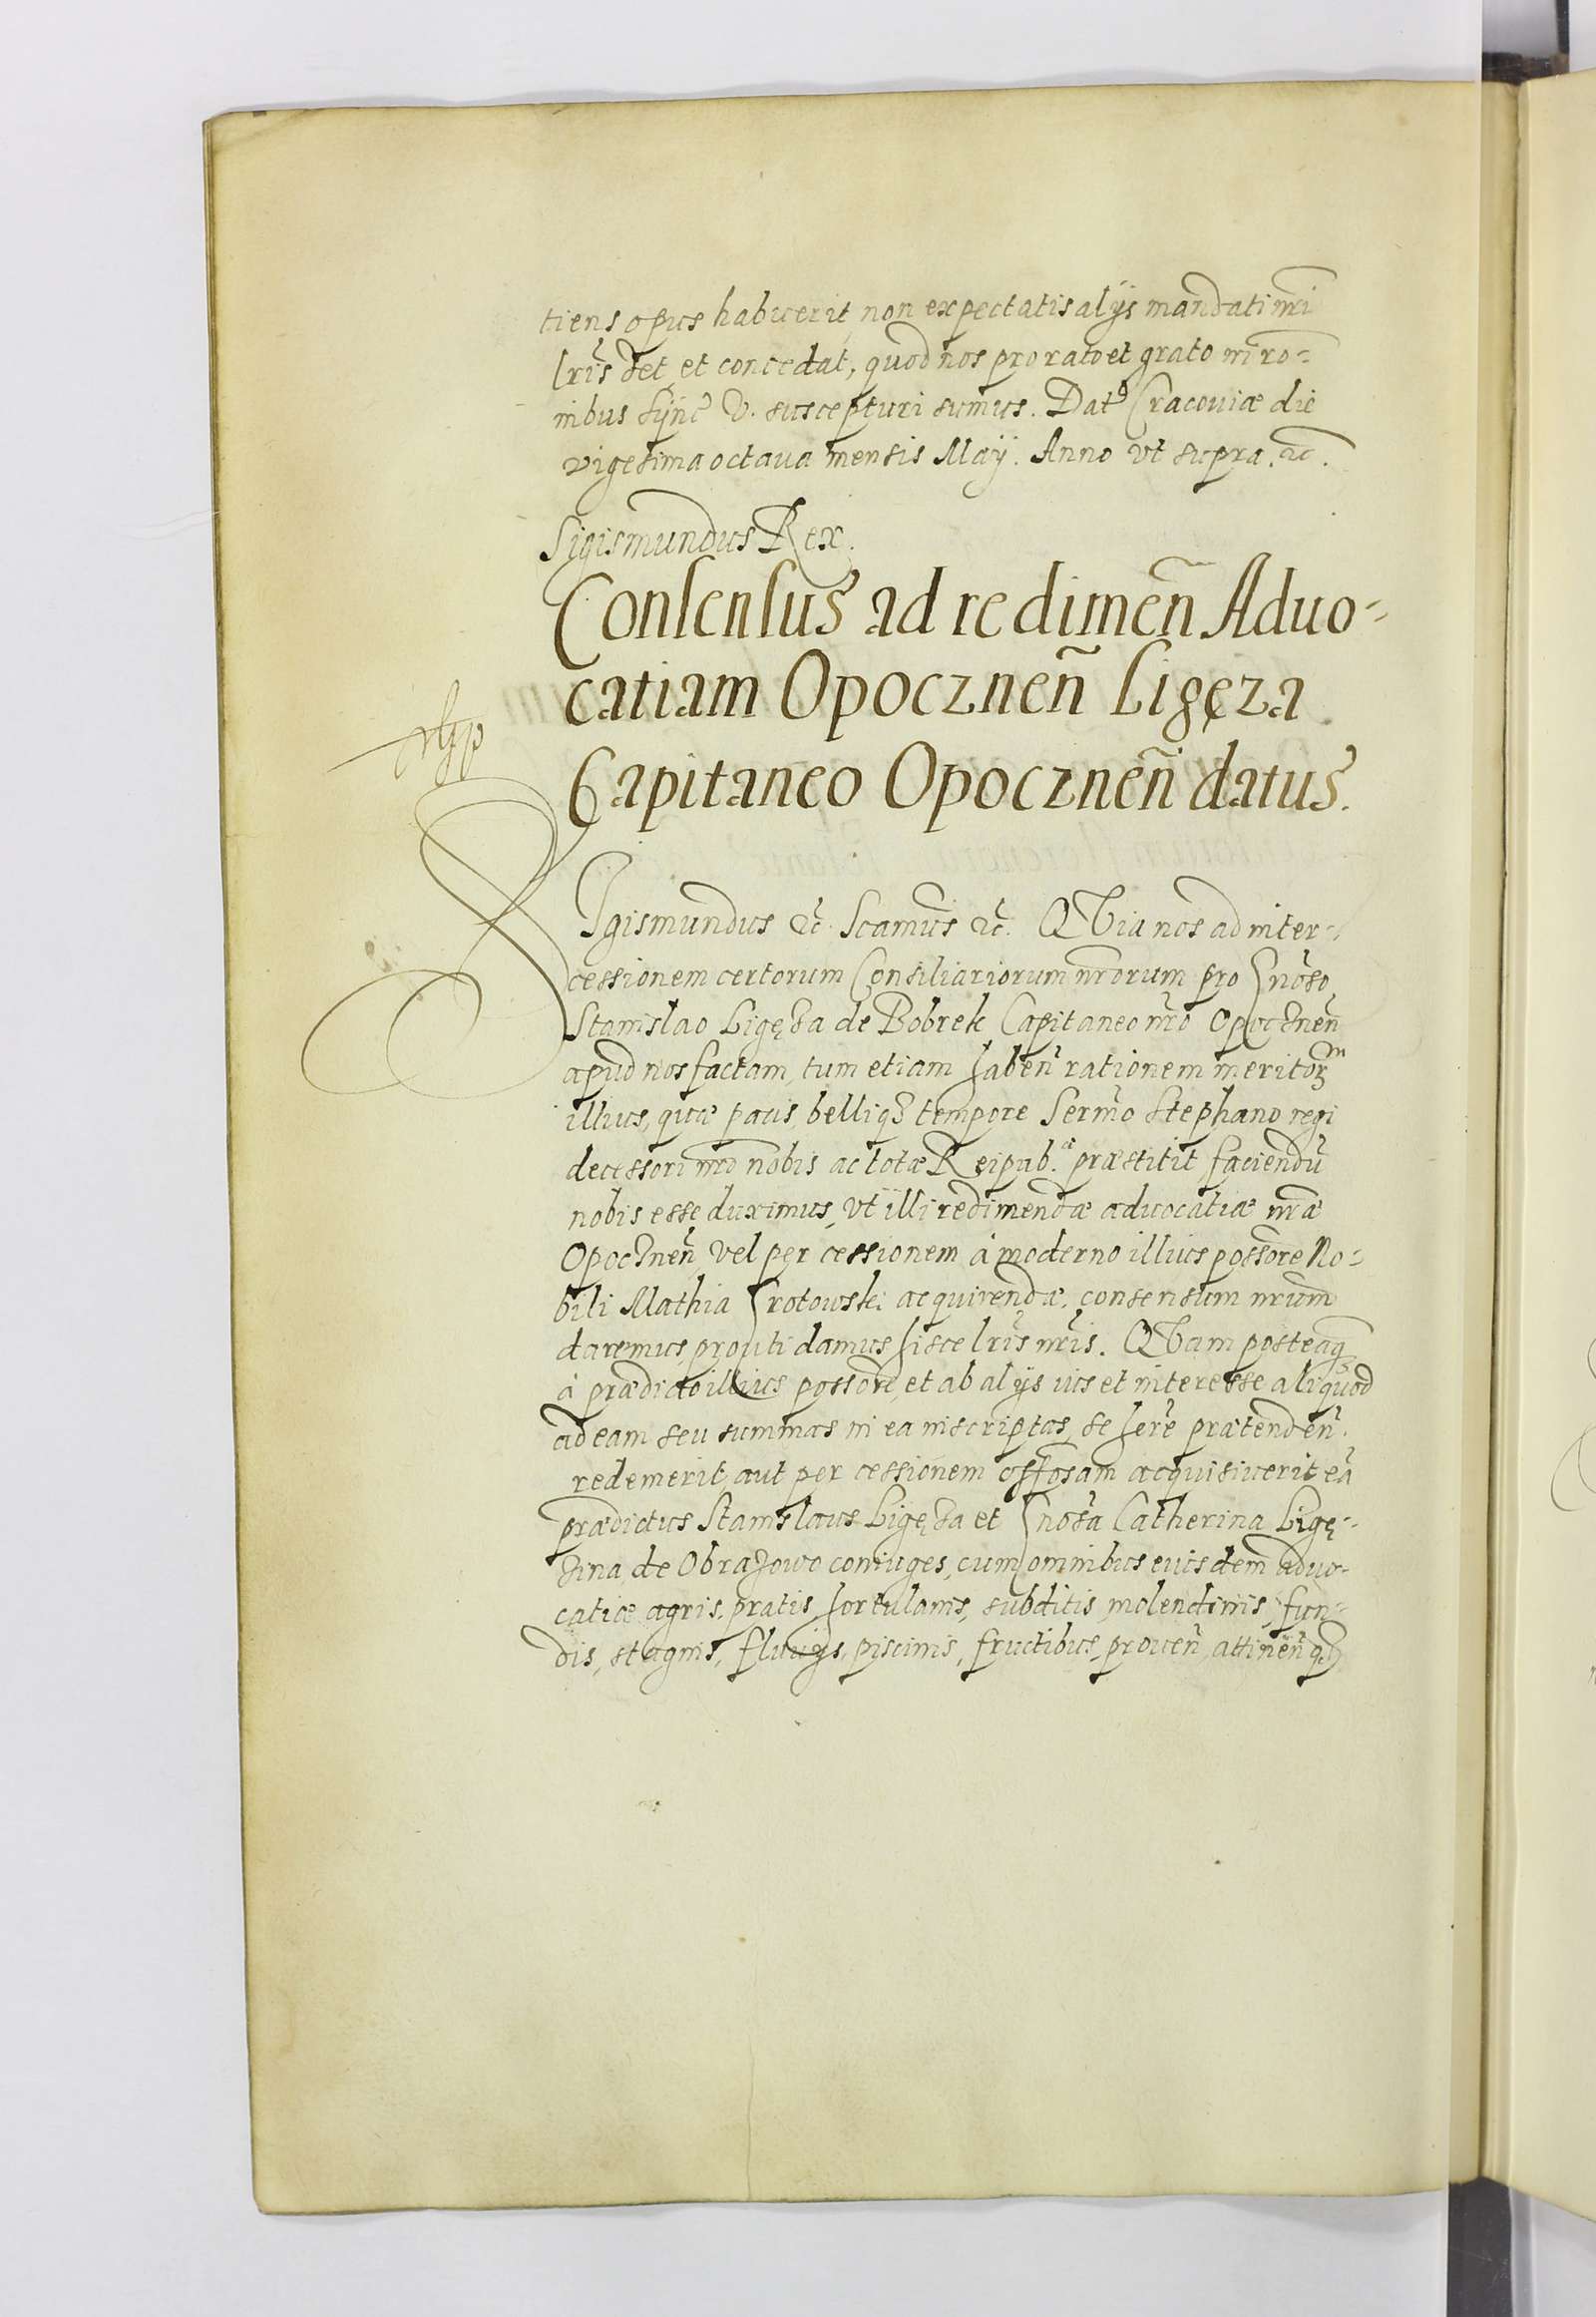 tiens opus habuerit, non expectatis alÿs mandati nr̃i
lr̃is det et concedat, quod nos pro rato et grato in ro-
nibus Sÿnc̃ V. suscepturi sumus. Dat Cracouiæ die
vigesima octaua mensis Maÿ. Anno vt supra. &c.
Sigismundus Rex.
Consensus ad redimeñ Aduo-
catiam Opoczneñ Ligęza
Capitaneo Opoczneñ datus.
Sigismundus &c̃. Scamus &c̃. QVia nos ad inter-
cessionem certorum Consiliariorum nr̃orum pro Gnõso
Stanislao Ligęza de Bobrek Capitaneo nr̃o Opoczneñ
apud nos factam, tum etiam habeñ rationem meritoꝝ
illius, quæ pacis, belliqꝫ tempore Serm̃o Stephano regi
decessori nr̃o nobis ac totæ Reipub.æ præstitit faciendũ
nobis esse duximus, vt illi redimendæ aduocatiæ nr̃æ
Opoczneñ, vel per cessionem á moderno illius possõre No-
bili Mathia Grotowski acquirendæ, consensum nr̃um
daremus, prouti damus hisce lr̃is nr̃is. QVam posteaq̃
á prædicto illius possõre, et ab alÿs ius et interesse aliquod
ad eam seu summas in ea inscriptas, se her̃e prætendeñ.
redemerit, aut per cessionem offosam acquisiuerit eã
prædictus Stanislaus Ligęza et Gnõsa Catherina Ligę-
zina de Obrazowo coniuges, cum omnibus eiusdem aduo-
catiæ agris, pratis, hortulanis, subditis, molendinis, fun-
dis, stagnis, fluuÿs, piscinis, fructibus, proueñ, attineñqꝫ